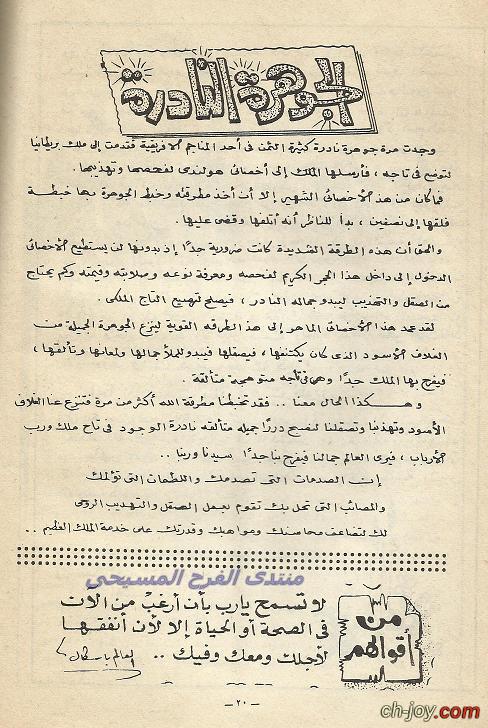 الجوهرة النادرة
وجدت مرة جوهرة نادرة كثيرة الثمن فى أحد المناجم الافريقية فقدمت إلى ملك بريطانيا
لتوضع فى تاجه ، فأرسلها الملك إلى أخصائى هولندى لفحصها وتهذيبها .
فما كان من هذا الأخصائى الشهير إلا أن أخذ مطرقته وخبط الجوهرة بها خبطة
فلقها إلى نصفين ، بدأ للناظر أنه أتلفها وقضى عليها .
والحق أن هذه الطرقة الشديدة كانت ضرورية جدًا إذ بدونها لن يستطيع الأخصائى
الدخول إلى داخل هذا الحجر الكريم لفحصه ومعرفة نوعه وصلابته وقيمته وكم يحتاج
من الصقل والتهذيب ليبدو جماله النادر ، فيصلح لترصيع التاج الملكى .
لقد عمد هذا الأخصائى الماهر إلى هذا الطرقه القوية لينزع الجوهرة الجميلة من
الغلاف الأسود الذى كان يكتنفها ، فيصقلها فيبدو للملأ جمالها ولمعانها وتألقها ،
فيفرح بها الملك جدًا وهى فى تاجه متوهجة متألقة .
وهكذا الحال معنا .. فقد تخبطنا مطرقة الله أكثر من مرة فتنزع عنا الغلاف
الأسود وتهذبنا وتصقلنا لنصبح دررًا جميله متألقه نادرة الوجود فى تاج ملك ورب
الأرباب ، فيرى العالم جمالنا فيفرح بنا جدًا سيدنا وربنا ..
إن الصدمات التى تصدمك واللطمات التى تؤلمك
والمصائب التى تحل بك تقوم بعمل الصقل والتهذيب الروحى
لك لتضاعف محاسنك ومواهبك وقدرتك على خدمة الملك العظيم ..
منتدى الفرح المسيحى
من أقوالهم
لا تسمح يارب بأن أرغب من الآن
فى الصحة أو الحياة إلا لأن أنفقها
لأجلك ومعك وفيك ..
العالم باسكال
- ٢٠ -
ch-joy.com